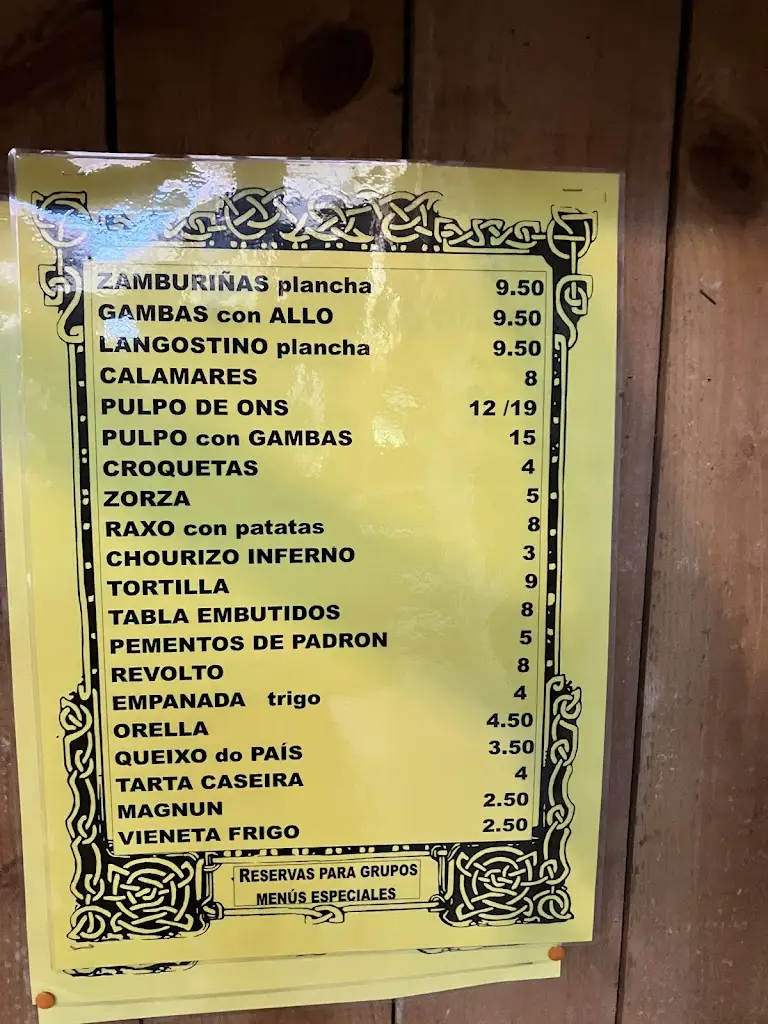 ZAMBURIÑAS plancha 9.50
GAMBAS con ALLO 9.50
LANGOSTINO plancha 9.50
CALAMARES 8
PULPO DE ONS 12 /19
PULPO con GAMBAS 15
CROQUETAS 4
ZORZA 5
RAXO con patatas 8
CHOURIZO INFERNO 3
TORTILLA 9
TABLA EMBUTIDOS 8
PEMENTOS DE PADRON 5
REVOLTO 8
EMPANADA trigo 4
ORELLA 4.50
QUEIXO do PAÍS 3.50
TARTA CASEIRA 4
MAGNUN 2.50
VIENETA FRIGO 2.50
RESERVAS PARA GRUPOS
MENÚS ESPECIALES